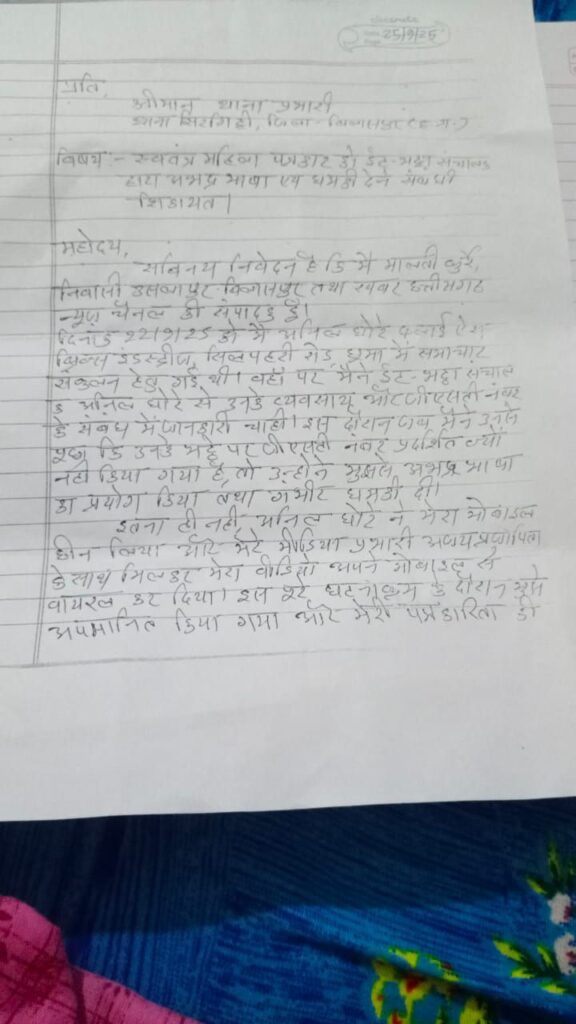 classmate
25/9/25
प्रति,
श्रीमान थाना प्रभारी
थाना सिरगिट्टी, जिला - बिलासपुर (छ.ग.)
विषय:- स्वतंत्र महिला पत्रकार को ईंट-भट्ठा संचालक
द्वारा अभद्र भाषा एवं धमकी देने संबंधी
शिकायत।
महोदय,
सविनय निवेदन है कि मैं मालती कुर्रे,
निवासी बिलासपुर तथा खबर छत्तीसगढ़
न्यूज चैनल की संपादक हूँ।
दिनांक 22/9/25 को मैं अनिल घोरे फ्लाई ऐश
ब्रिक्स इंडस्ट्रीज, सिलपहरी रोड, धूमा में समाचार
संकलन हेतु गई थी। वहाँ पर मैंने ईंट-भट्ठा संचाल
क अनिल घोरे से उनके व्यवसाय और जीएसटी नंबर
के संबंध में जानकारी चाही। इस दौरान जब मैंने उनसे
पूछा कि उनके भट्ठे पर जीएसटी नंबर प्रदर्शित क्यों
नहीं किया गया है, तो उन्होंने मुझसे अभद्र भाषा
का प्रयोग किया तथा गंभीर धमकी दी।
इतना ही नहीं, अनिल घोरे ने मेरा मोबाइल
छीन लिया और मेरे मीडिया प्रभारी
के साथ मिलकर मेरा वीडियो अपने मोबाइल से
वायरल कर दिया। इस पूरे घटनाक्रम के दौरान मुझे
अपमानित किया गया और मेरी पत्रकारिता की